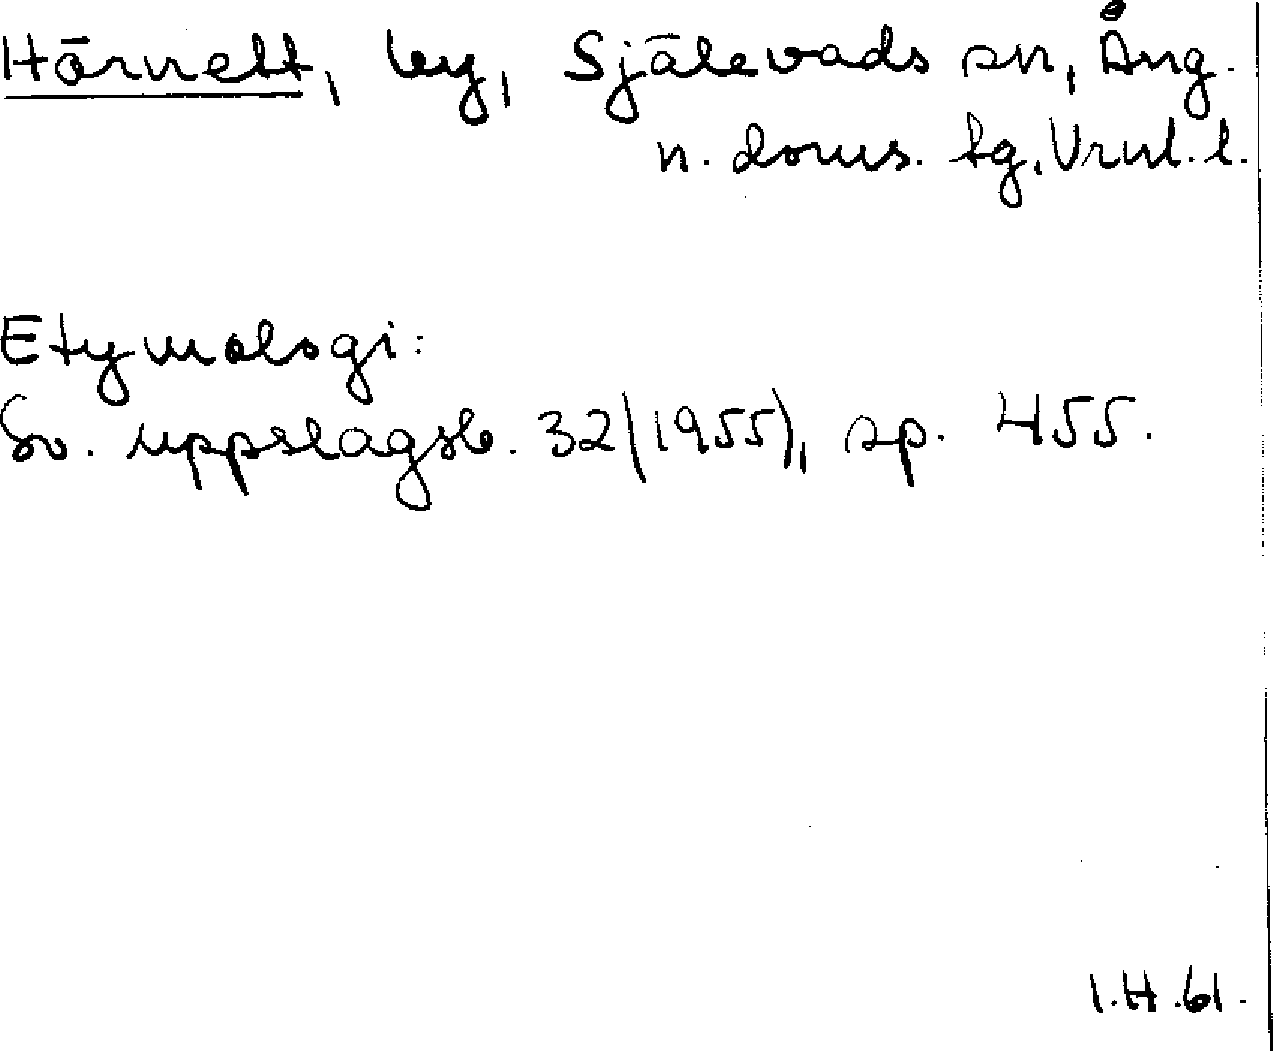 Hörnett, by, Själevads sn, Ång.
n. doms. tg, Vrnl. l.
Etymologi:
Sv. uppslagsb. 32(1955), sp. 455.
I.H.61.